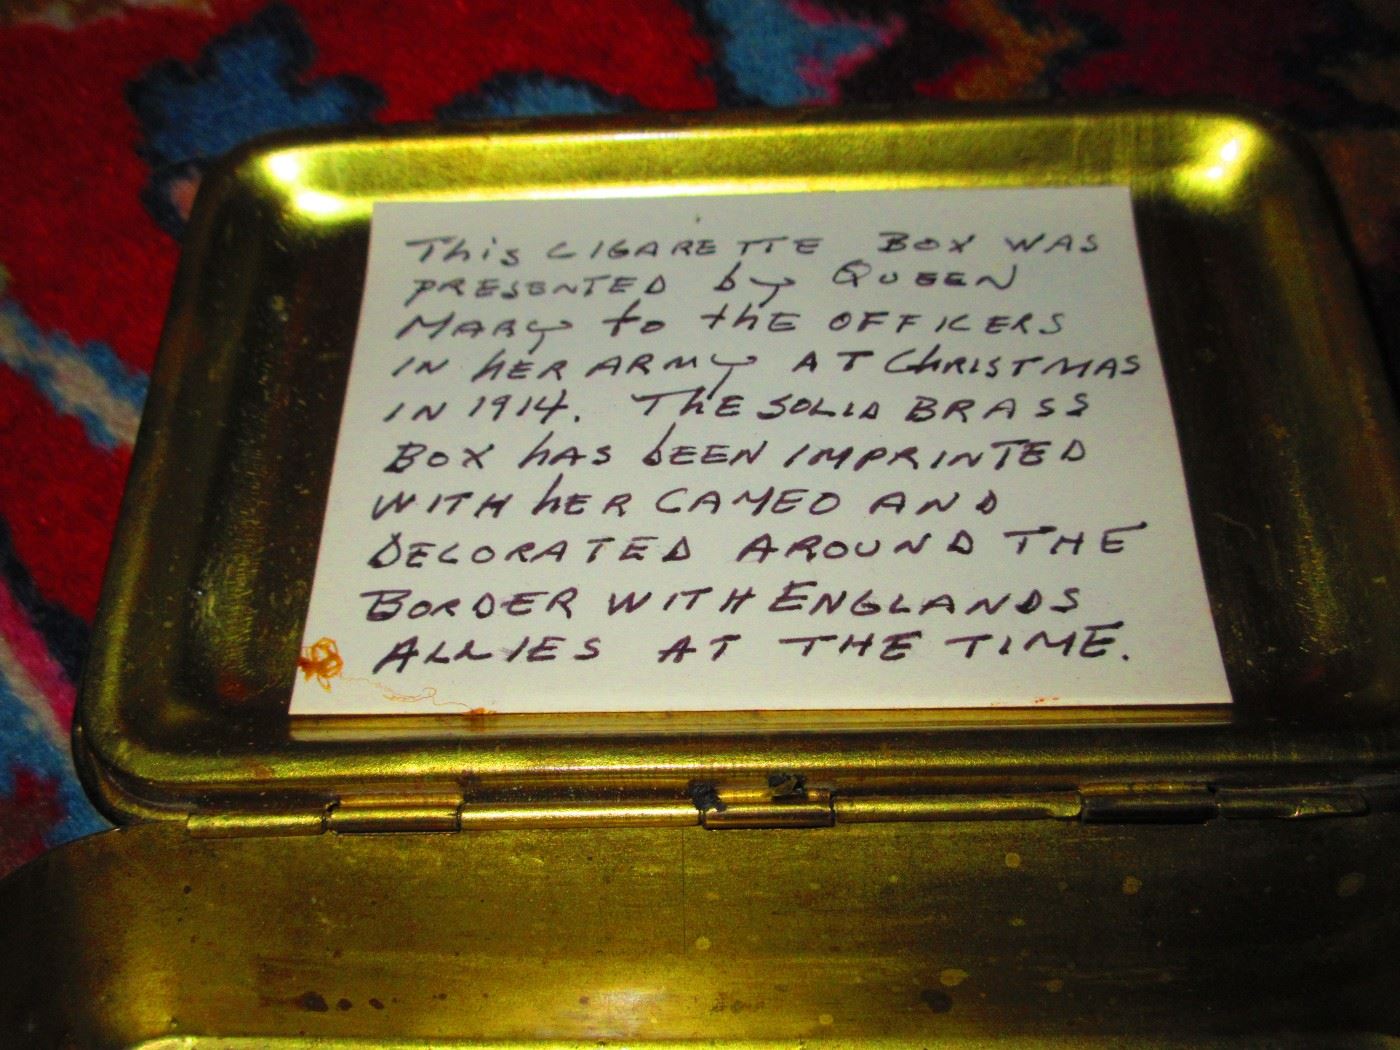 This CIGARETTE BOX WAS
PRESENTED by QUEEN
MARY to thE OFFICERS
IN hER ARMY AT ChRISTMAS
IN 1914. ThE SOLID BRASS
BOX hAS bEEN IMPRINTED
WITH hER CAMEO AND
DECORATED AROUND THE
BORDER WITH ENGLANDS
ALLIES AT THE TIME.